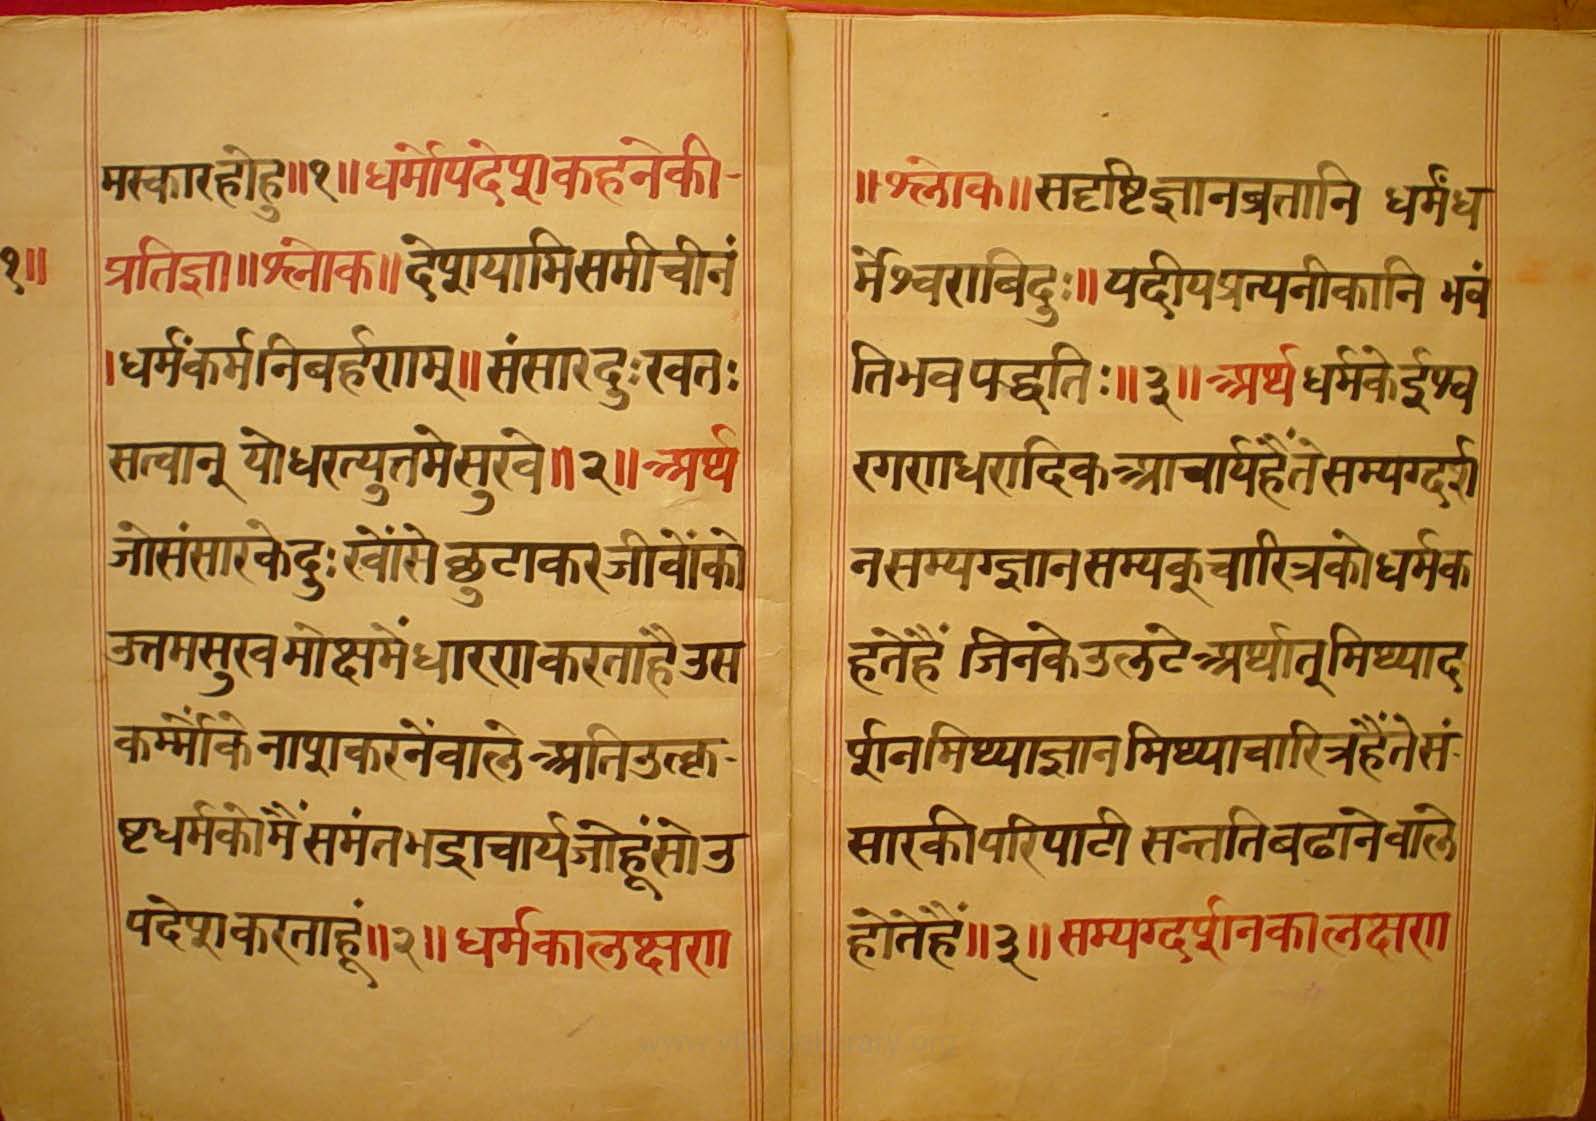 मस्कारहोहु॥१॥धर्मोपदेशकहनेकी-
१॥
प्रतिज्ञा॥श्लोक॥देशयामिसमीचीनं
।धर्मंकर्मनिबर्हणम्॥संसारदुःखतः
सत्वान् योधरत्युत्तमेसुखे॥२॥अर्थ
जोसंसारकेदुःखोंसे छुटाकरजीवोंको
उत्तमसुखमोक्षमेंधारणकरताहैउस
कर्म्मोंकेनाशकरनेंवालेअतिउत्कृ-
ष्टधर्मकोमैंसमंतभद्राचार्यजोहूंसोउ
पदेशकरताहूं॥२॥धर्मकालक्षण
॥श्लोक॥सदृष्टिज्ञानव्रतानि धर्मंध
र्मेश्वराबिदुः॥यदीयप्रत्यनीकानि भवं
तिभवपद्धतिः॥३॥अर्थधर्मकेईश्व
रगणधरादिकआचार्यहैंतेसम्यग्दर्श
नसम्यग्ज्ञानसम्यक्चारित्रकोधर्मक
हतेहैं जिनकेउलटेअर्थात्मिथ्याद
र्शनमिथ्याज्ञानमिथ्याचारित्रहैंतेसं-
सारकीपरिपाटी सन्ततिबढानेवाले
होतेहैं॥३॥सम्यग्दर्शनकालक्षण